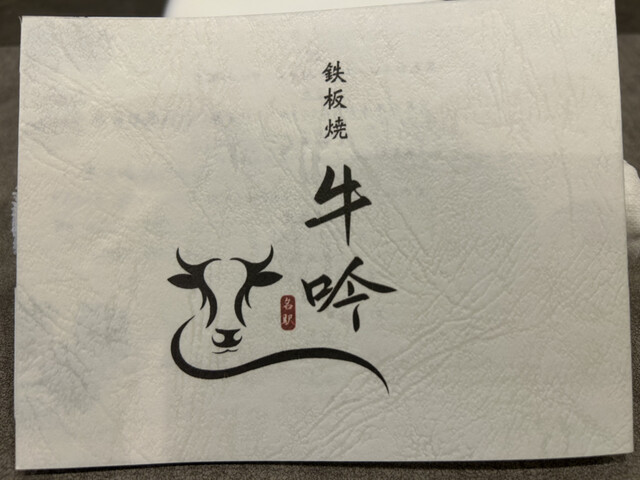 鉄板焼
牛吟
名駅